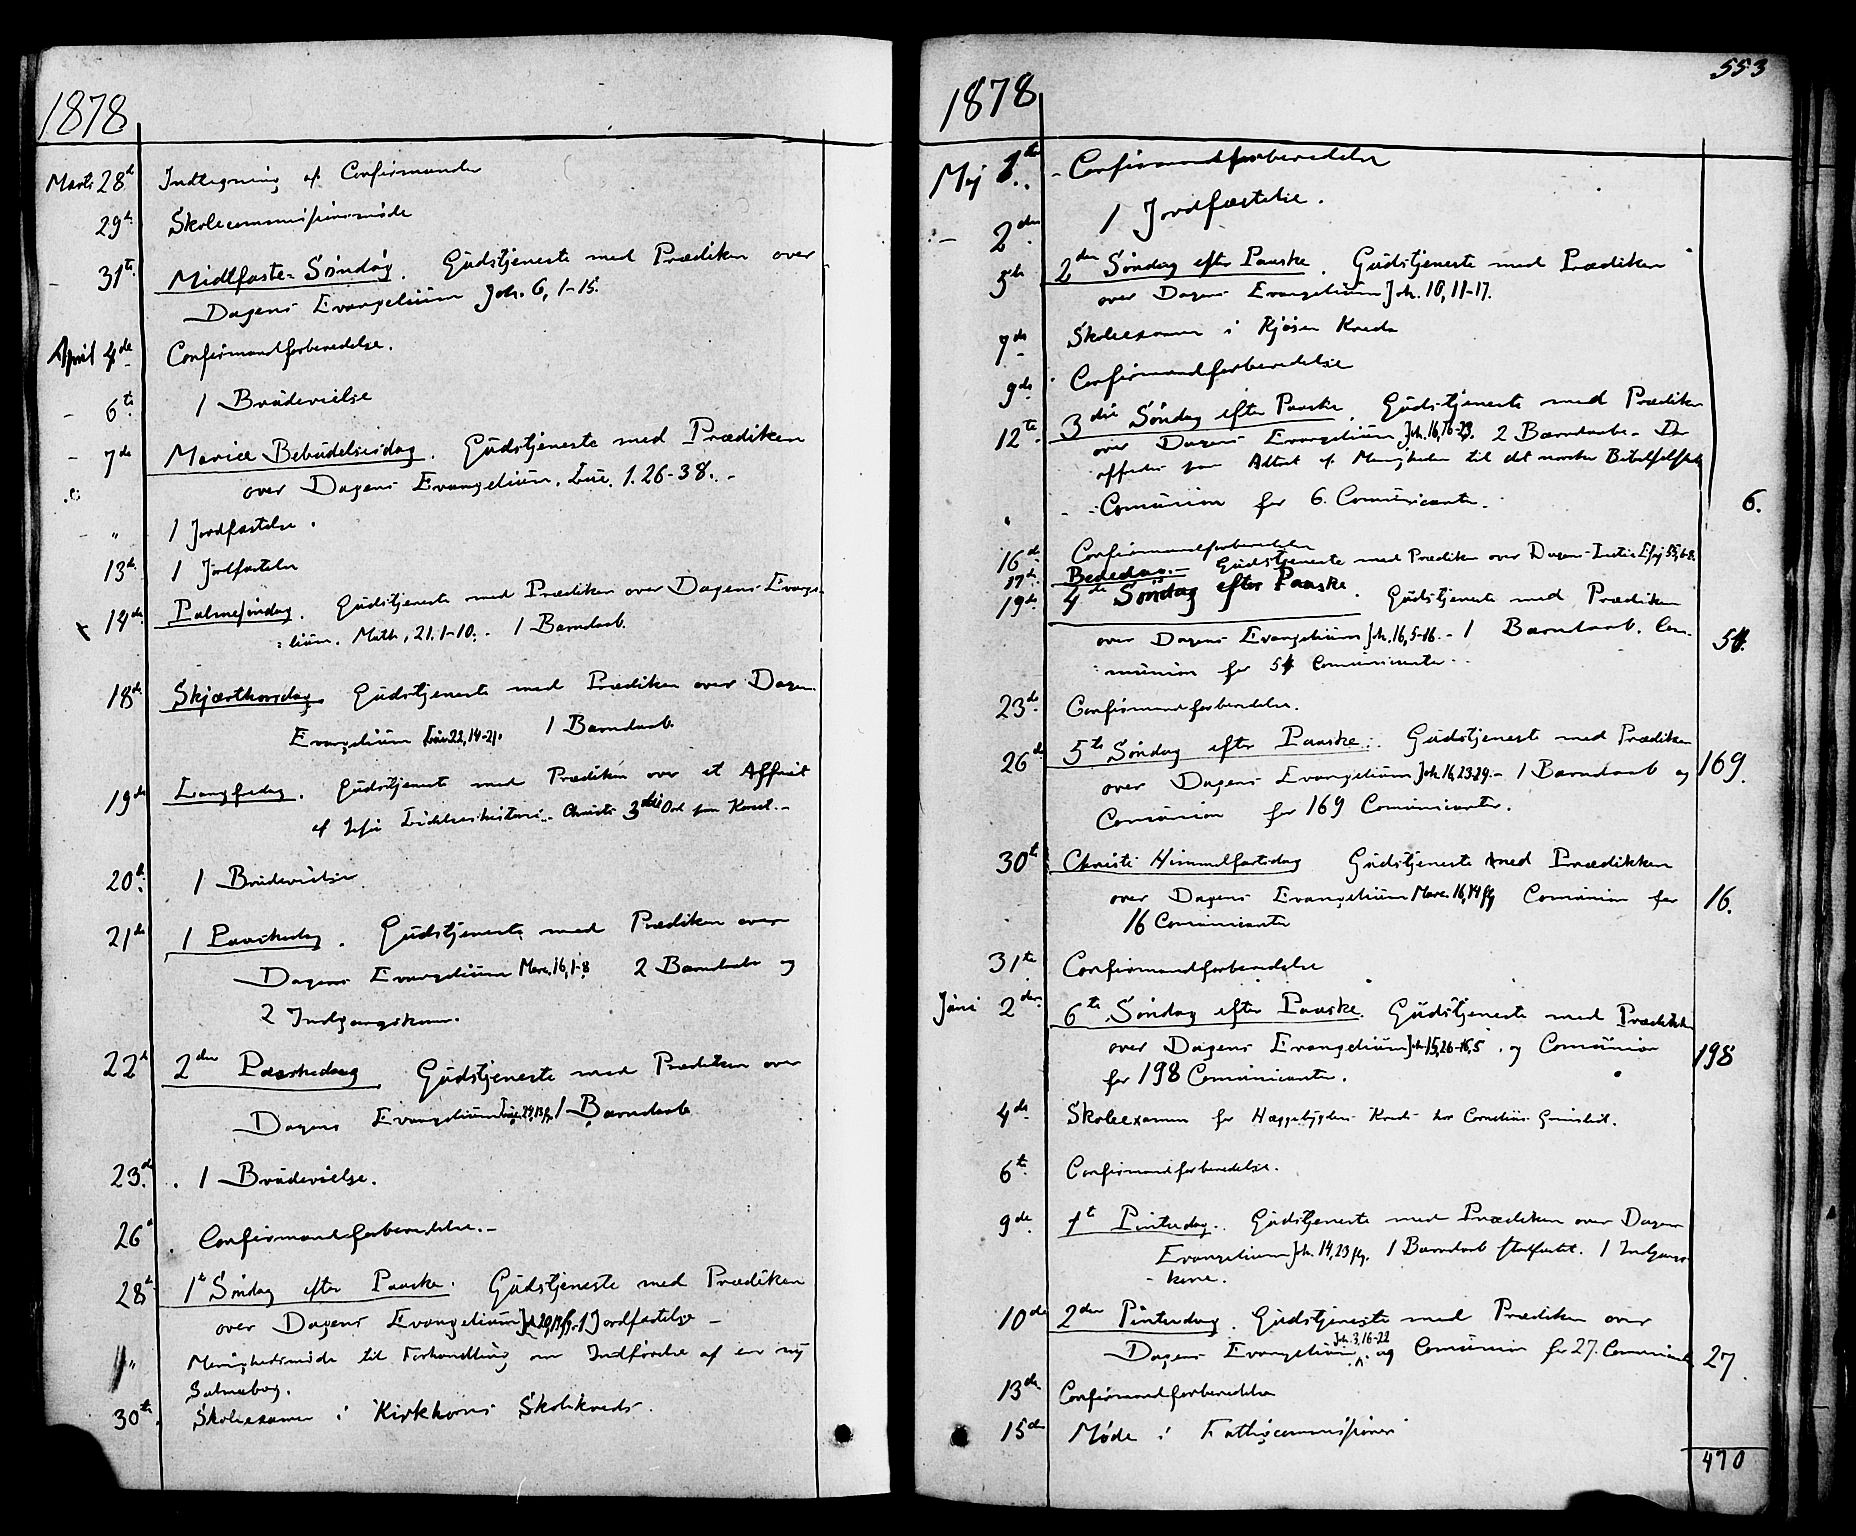 1878
Marts 28de Indtegning af Confirmander
29de Skolecommissionsmøde
- 31te Midtfaste-Søndag. Gudstjeneste med Prædiken over
Dagens Evangelium Joh. 6, 1-15.
April 4de Confirmandforberedelse.
- 6te 1 Brudevielse
- 7de Mariæ Bebudelsesdag. Gudstjeneste med Prædiken
over Dagens Evangelium, Luc. 1.26-38. -
- " 1 Jordfæstelse.
13de 1 Jordfæstelse
14de Palmesøndag. Gudstjeneste med Prædiken over Dagens Evange-
lium. Math, 21.1-10. - 1 Barndaab.
18de Skjærthorsdag. Gudstjeneste med Prædiken over Dagens
Evangelium Luc 22, 14-21. 1 Barndaab
19de Langfredag. Gudstjeneste med Prædiken over et Affsnit
af Jesu Lidelseshistorie. Christi 3die Ord paa Korset. -
20de 1 Brudevielse
21de 1 Paaskedag. Gudstjeneste med Prædiken over
Dagens Evangelium Marc. 16, 1-8 2 Barndaab og
2 Indgangskoner.
22de 2den Paaskedag Gudstjeneste med Prædiken over
Dagens Evangelium 1 Barndaab
23de. 1 Brudevielse.
26de Confirmandforberedelse. -
28de 1te Søndag efter Paaske. Gudstjeneste med Prædiken
over Dagens Evangelium 1 Jordfæstelse -
" Menighedsmøde til Forhandling om Indførelse af en ny
Salmebog.
30te Skoleexamen i Kirkhorns Skolekreds.
553
1878
Maj 1te - Confirmandforberedelse
- 2den 1 Jordfæstelse.
5te 2den Søndag efter Paaske. Gudstjeneste med Prædiken
over Dagens Evangelium Joh. 10, 11-17.
7de Skoleexamen i Kjøsen Kreds
9de Confirmandforberedelse
12te 3die Søndag efter Paaske. Gudstjeneste med Prædiken
over Dagens Evangelium Joh. 16, 16-23. 2 Barndaab. Der
offredes paa Altret af Menigheden til det norske Bibelselskab
Comunion for 6. Comunicanter. 6.
16de Confirmandforberedelse
17de Bededag. - Gudstjeneste med Prædiken over Dagens Texter Esaj 55, 6-8.
19de 4de Søndag efter Paaske. Gudstjeneste med Prædiken
over Dagens Evangelium Joh. 16, 5-16. - 1 Barndaab. Com-
munion for 54 Comunicanter. 54.
23de Confirmandforberedelse.
26de 5te Søndag efter Paaske. Gudstjeneste med Prædiken
over Dagens Evangelium Joh. 16, 23-29. - 1 Barndaab og 169.
Comunion for 169 Comunicanter.
30te Christi Himmelfartsdag Gudstjeneste med Prædikken
over Dagens Evangelium Marc. 16, 14 flg Comunion for 16.
16 Comunicanter
31te Confirmandforberedelse
Juni 2den 6te Søndag efter Paaske. Gudstjeneste med Prædikken
over Dagens Evangelium Joh 15, 26-16, 5. og Comunion 198
for 198 Comunicanter.
4de Skoleexamen for Kreds hos Cornelius
6te Confirmandforberedelse.
9de 1te Pintsedag. Gudstjeneste med Prædiken over Dagens
Evangelium Joh. 14, 23 flg. 1 Barndaab stadfæstet. 1 Indgangs-
kone.
10de 2den Pintsedag. Gudstjeneste med Prædiken over
Joh. 3, 16-22
Dagens Evangelium og Comunion for 27. Comunicant 27.
13de Confirmandforberedelse
15de Møde i Fattigcommissionen
470